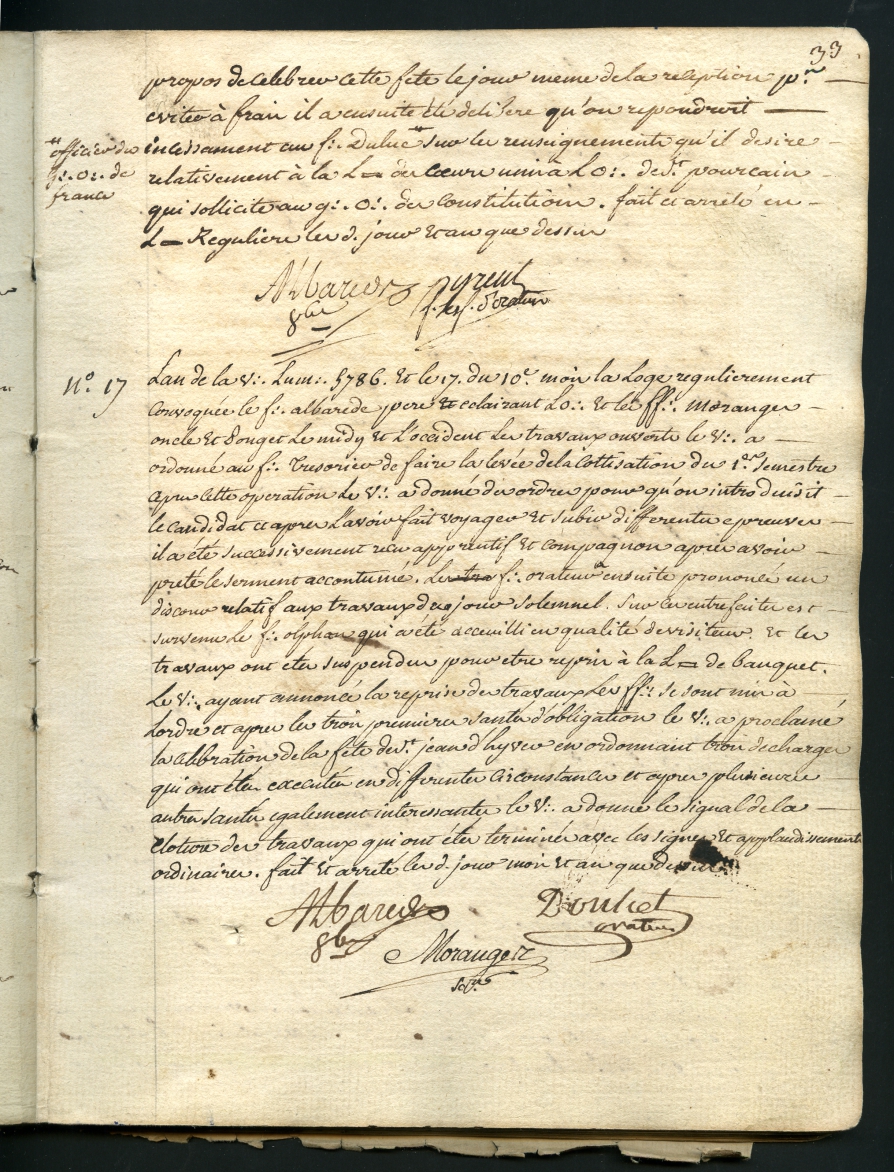 33
propos de celebrer cette fete le jour meme de la reception pr.
eviter à frais il a ensuite été deliberé qu'on repondroit
incessament au f∴ Dulac ** sur les renseignements qu'il desire
** officier du
g∴ o∴ de
france
relativement à la L▭ des Cœurs unis à L'O∴ de St pourcain
qui sollicite au g∴ O∴ des Constitutions. fait et arrêté en
L▭ Reguliere les d. jour et an que dessus
Albarede
pyrent
f. d'orateur
N° 17
Lan de la V∴ Lum∴ 5786. Et le 17. du 10e. mois la Loge regulierement
Convoquée le f∴ albarede pere eclairant L'O∴ Et les ff∴ Moranges
oncle Et Pouget Le midy Et L'occident Les travaux ouverts le V∴ a
ordonné au f∴ Tresorier de faire la levée de la Cottisation du 1er. Semestre
apres Cette operation Le V∴ a donné des ordres pour qu'on introduisit
le candidat et apres L'avoir fait voyager Et subir differentes epreuves
il a été successivement recu apprentif Et compagnon apres avoir
preté le serment accoutumé. Le f∴ orateur a ensuite prononcé un
discour relatif aux travaux de ce jour solemnel. Sur ces entrefaites est
survenu Le f∴ olphan qui a été accueilli en qualité de visiteur. Et les
travaux ont étés suspendus pour etre repris à la L▭ de banquet.
Le V∴ ayant annoncé la reprise des travaux Les ff∴ se sont mis à
Lordre et apres les trois premieres santés d'obligation le V∴ a proclamé
la celebration de la fête de St. jean d'hyver en ordonnant trois decharges
qui ont étés executées en differentes Circonstances et apres plusieures
autres santés egalement interessantes le V∴ a donné le signal de la
Cloture des travaux qui ont étés terminés avec les signes Et applaudissements
ordinaires. fait Et arreté les d. jour mois Et an que Dessus
Albarede
Douhet
orateur
Moranges